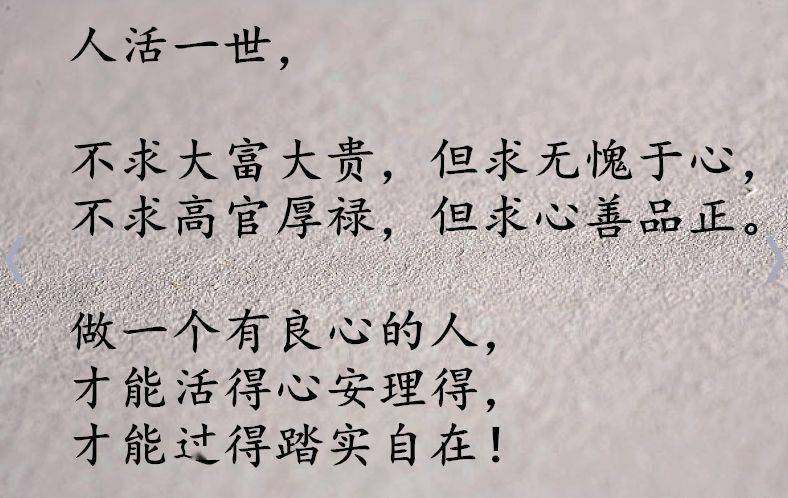 人活一世，
不求大富大贵，但求无愧于心，
不求高官厚禄，但求心善品正。
做一个有良心的人，
才能活得心安理得，
才能过得踏实自在！